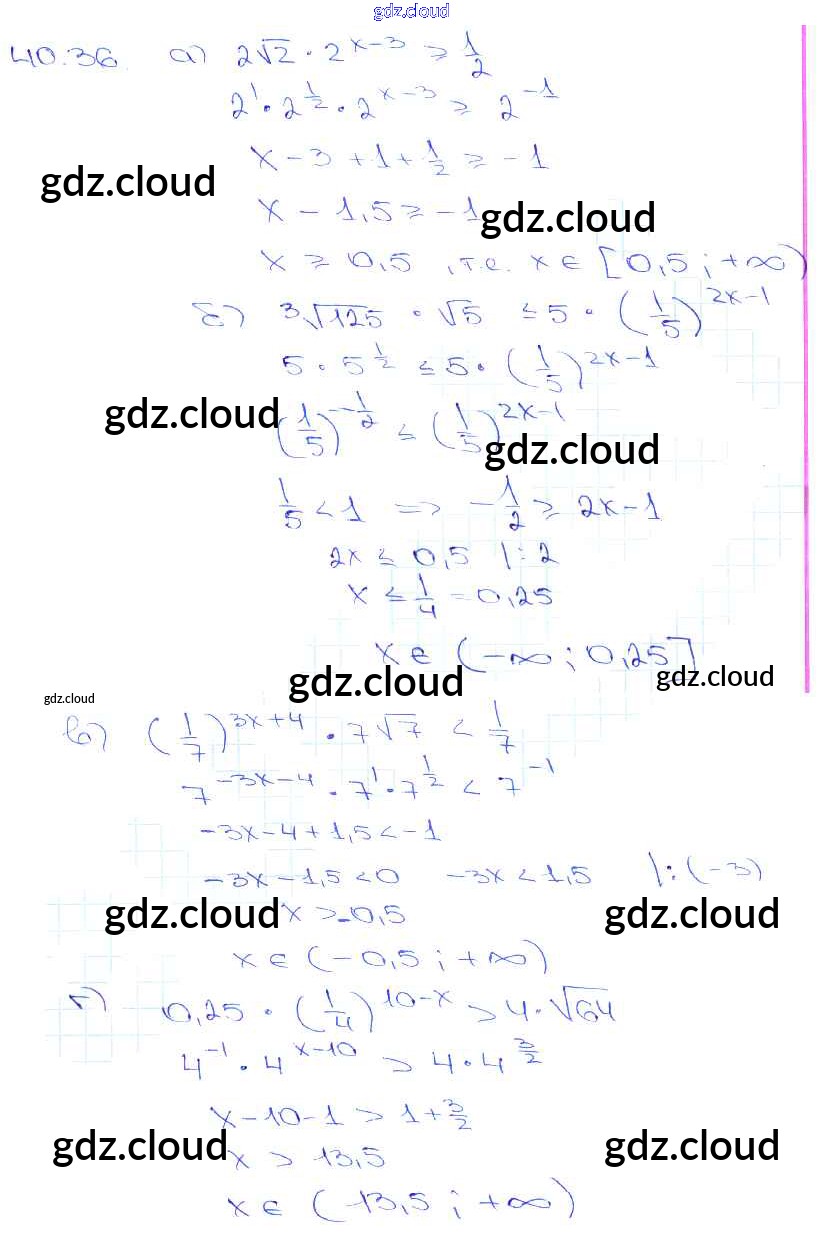 gdz.cloud
40.36. а) 2√2 · 2^(x-3) ≥ 1/2
2^1 · 2^(1/2) · 2^(x-3) ≥ 2^(-1)
x - 3 + 1 + 1/2 ≥ -1
gdz.cloud
x - 1,5 ≥ -1
gdz.cloud
x ≥ 0,5, т.е. x ∈ [0,5; +∞)
б) ³√125 · √5 ≤ 5 · (1/5)^(2x-1)
5 · 5^(1/2) ≤ 5 · (1/5)^(2x-1)
gdz.cloud
(1/5)^(-1/2) ≤ (1/5)^(2x-1)
gdz.cloud
1/5 < 1 => -1/2 ≥ 2x - 1
2x ≤ 0,5 |: 2
x ≤ 1/4 = 0,25
x ∈ (-∞; 0,25]
gdz.cloud
gdz.cloud
gdz.cloud
в) (1/7)^(3x+4) · 7√7 < 1/7
7^(-3x-4) · 7^1 · 7^(1/2) < 7^(-1)
-3x - 4 + 1,5 < -1
-3x - 1,5 < 0 -3x < 1,5 |: (-3)
gdz.cloud
x > -0,5
gdz.cloud
x ∈ (-0,5; +∞)
г) 0,25 · (1/4)^(10-x) > 4 · √64
4^(-1) · 4^(x-10) > 4 · 4^(3/2)
x - 10 - 1 > 1 + 3/2
gdz.cloud
x > 13,5
gdz.cloud
x ∈ (13,5; +∞)